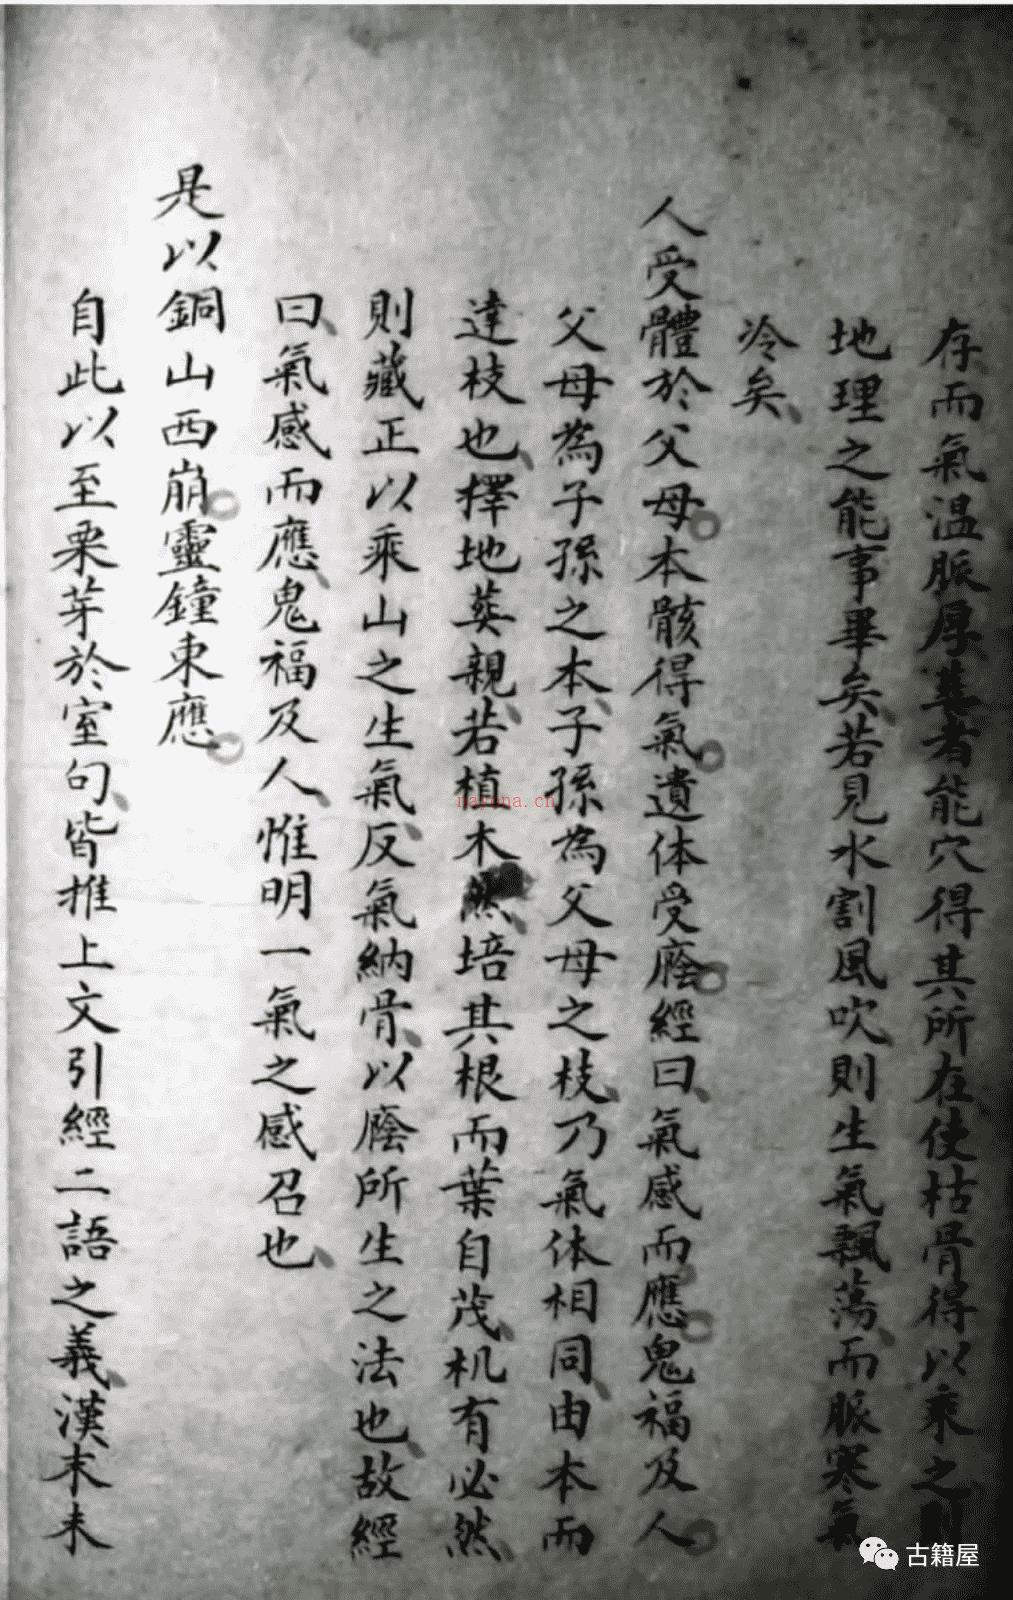 存而氣温脈厚塟者能穴得其所在使枯骨得以乘之則
地理之能事畢矣若見水割風吹則生氣飄蕩而脈寒氣
冷矣
人受體於父母本骸得氣遺体受廕經曰氣感而應鬼福及人
父母為子孫之本子孫為父母之枝乃氣体相同由本而
達枝也擇地葬親若植木然培其根而葉自茂机有必然
則藏正以乘山之生氣反氣納骨以廕所生之法也故經
曰氣感而應鬼福及人惟明一氣之感召也
是以銅山西崩靈鐘東應
自此以至栗芽於室句皆推上文引經二語之義漢末未
naryna.cn
古籍屋